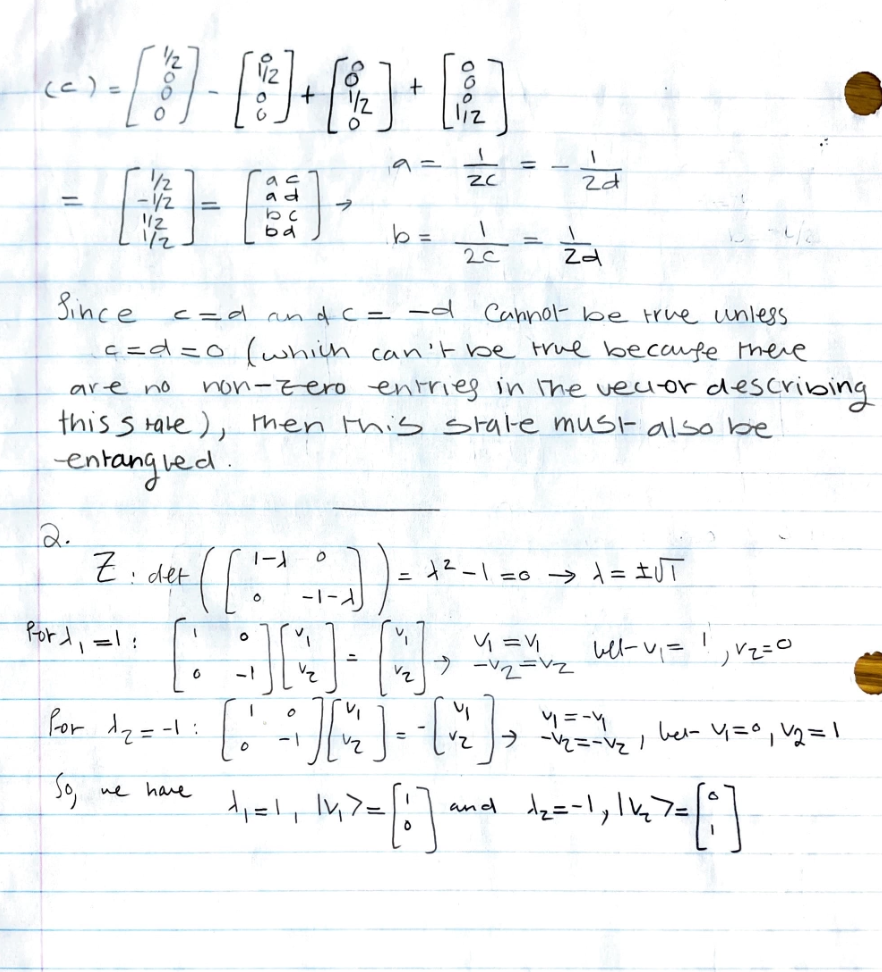 (c) = [1/2 0 0 0] - [0 1/2 0 0] + [0 0 1/2 0] + [0 0 0 1/2]
= [1/2 -1/2 1/2 1/2] = [ac ad bc bd] → a = 1/2c = - 1/2d
b = 1/2c = 1/2d
Since c=d and c= -d cannot be true unless
c=d=0 (which can't be true because there
are no non-zero entries in the vector describing
this state), then this state must also be
entangled.
2.
Z: det ([1-λ 0 0 -1-λ]) = λ²-1=0 → λ= ±√1
For λ₁=1: [1 0 0 -1][v₁ v₂] = [v₁ v₂] → v₁=v₁ -v₂=v₂ let v₁= 1, v₂=0
For λ₂=-1: [1 0 0 -1][v₁ v₂] = -[v₁ v₂] → v₁=-v₁ -v₂=-v₂, let v₁=0, v₂=1
So, we have λ₁=1, |v₁>=[1 0] and λ₂=-1, |v₂>=[0 1]